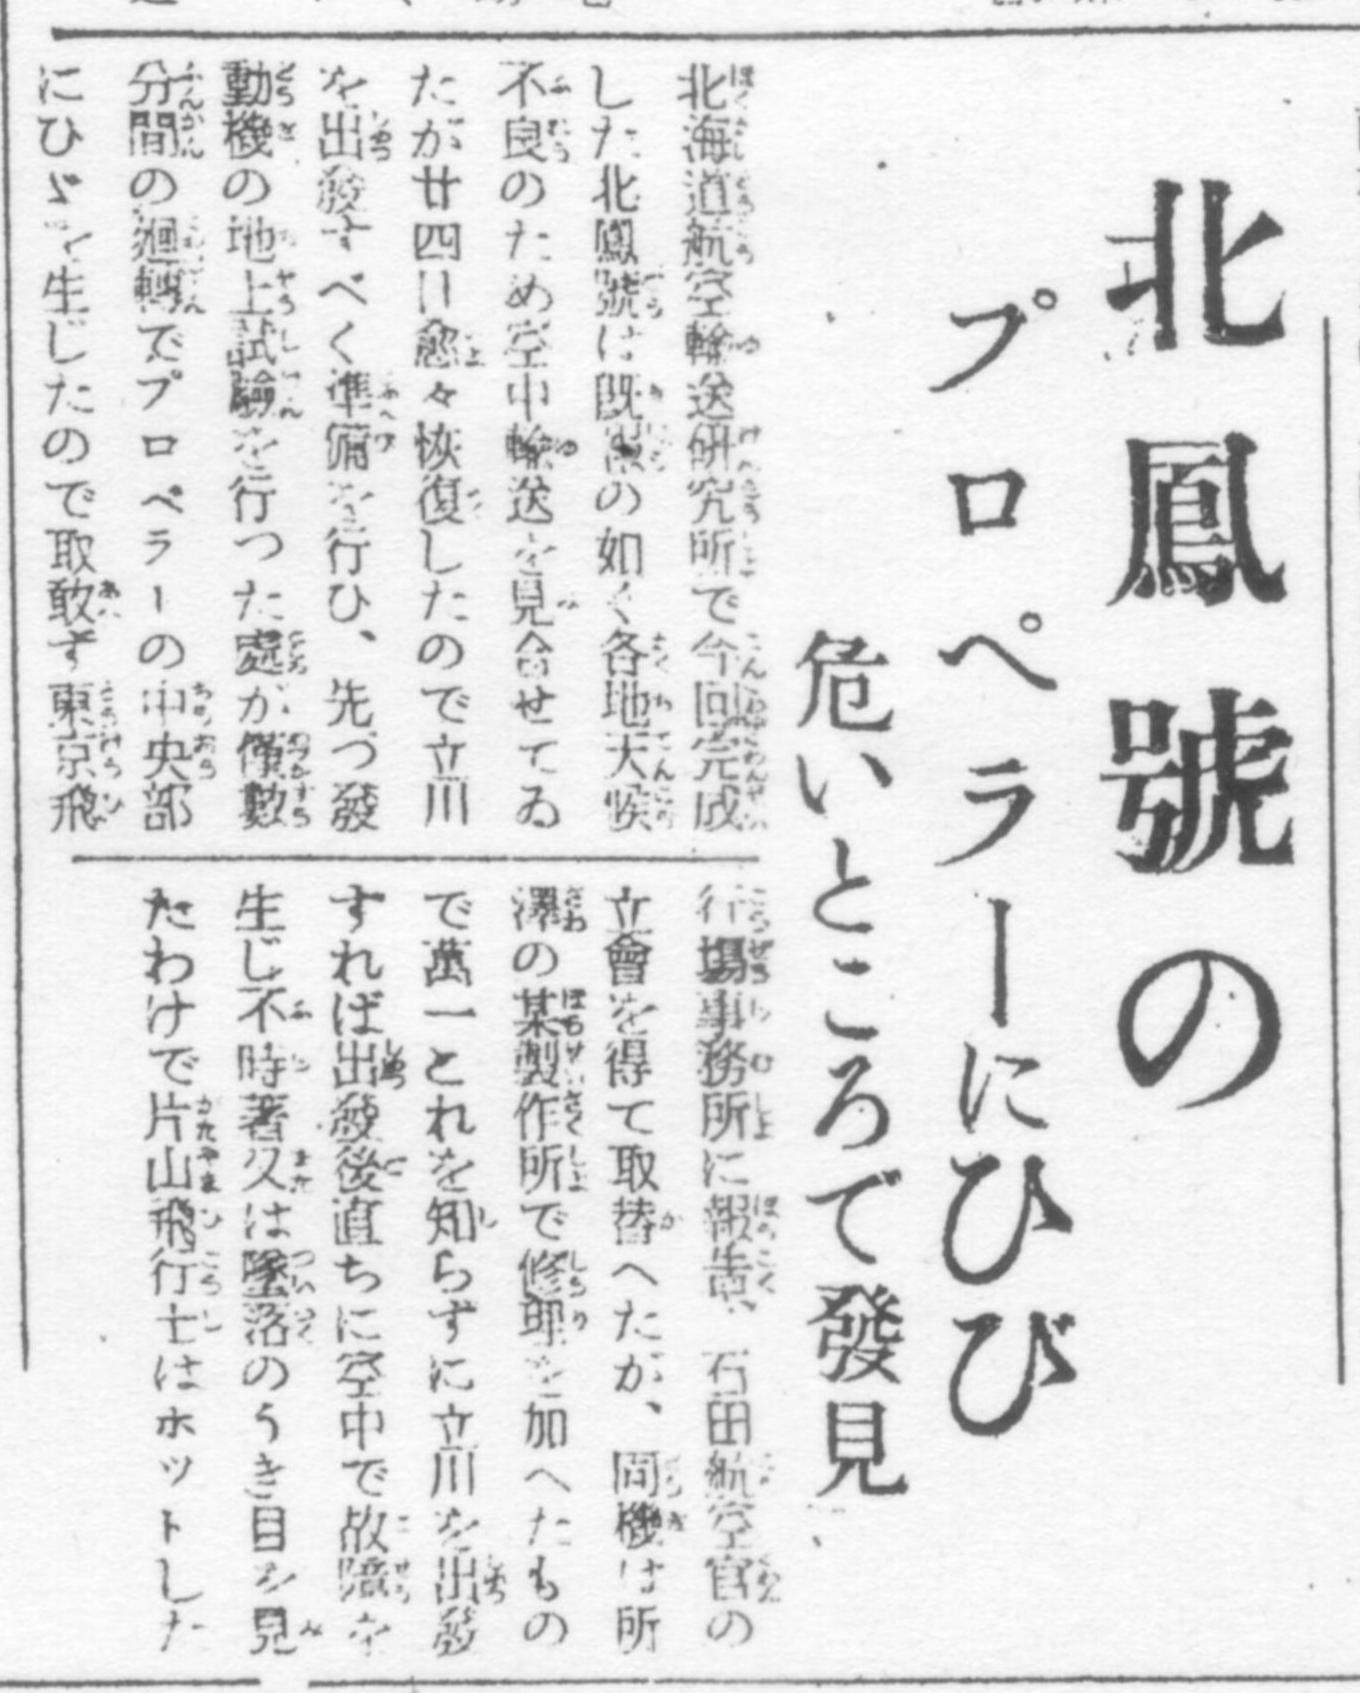 北鳳號の
プロペラーにひび
危いところで發見
北海道航空輸送研究所で今回完成
した北鳳號は既報の如く各地天候
不良のため空中輸送を見合せてゐ
たが廿四日愈々恢復したので立川
を出發すべく準備を行ひ、先づ發
動機の地上試驗を行つた處が僅數
分間の廻轉でプロペラーの中央部
にひゞを生じたので取敢ず東京飛
行場事務所に報告、石田航空官の
立會を得て取替へたが、同機は所
澤の某製作所で修理を加へたもの
で萬一とれを知らずに立川を出發
すれば出發後直ちに空中で故障を
生じ不時著又は墜落のうき目を見
たわけで片山飛行士はホツトした